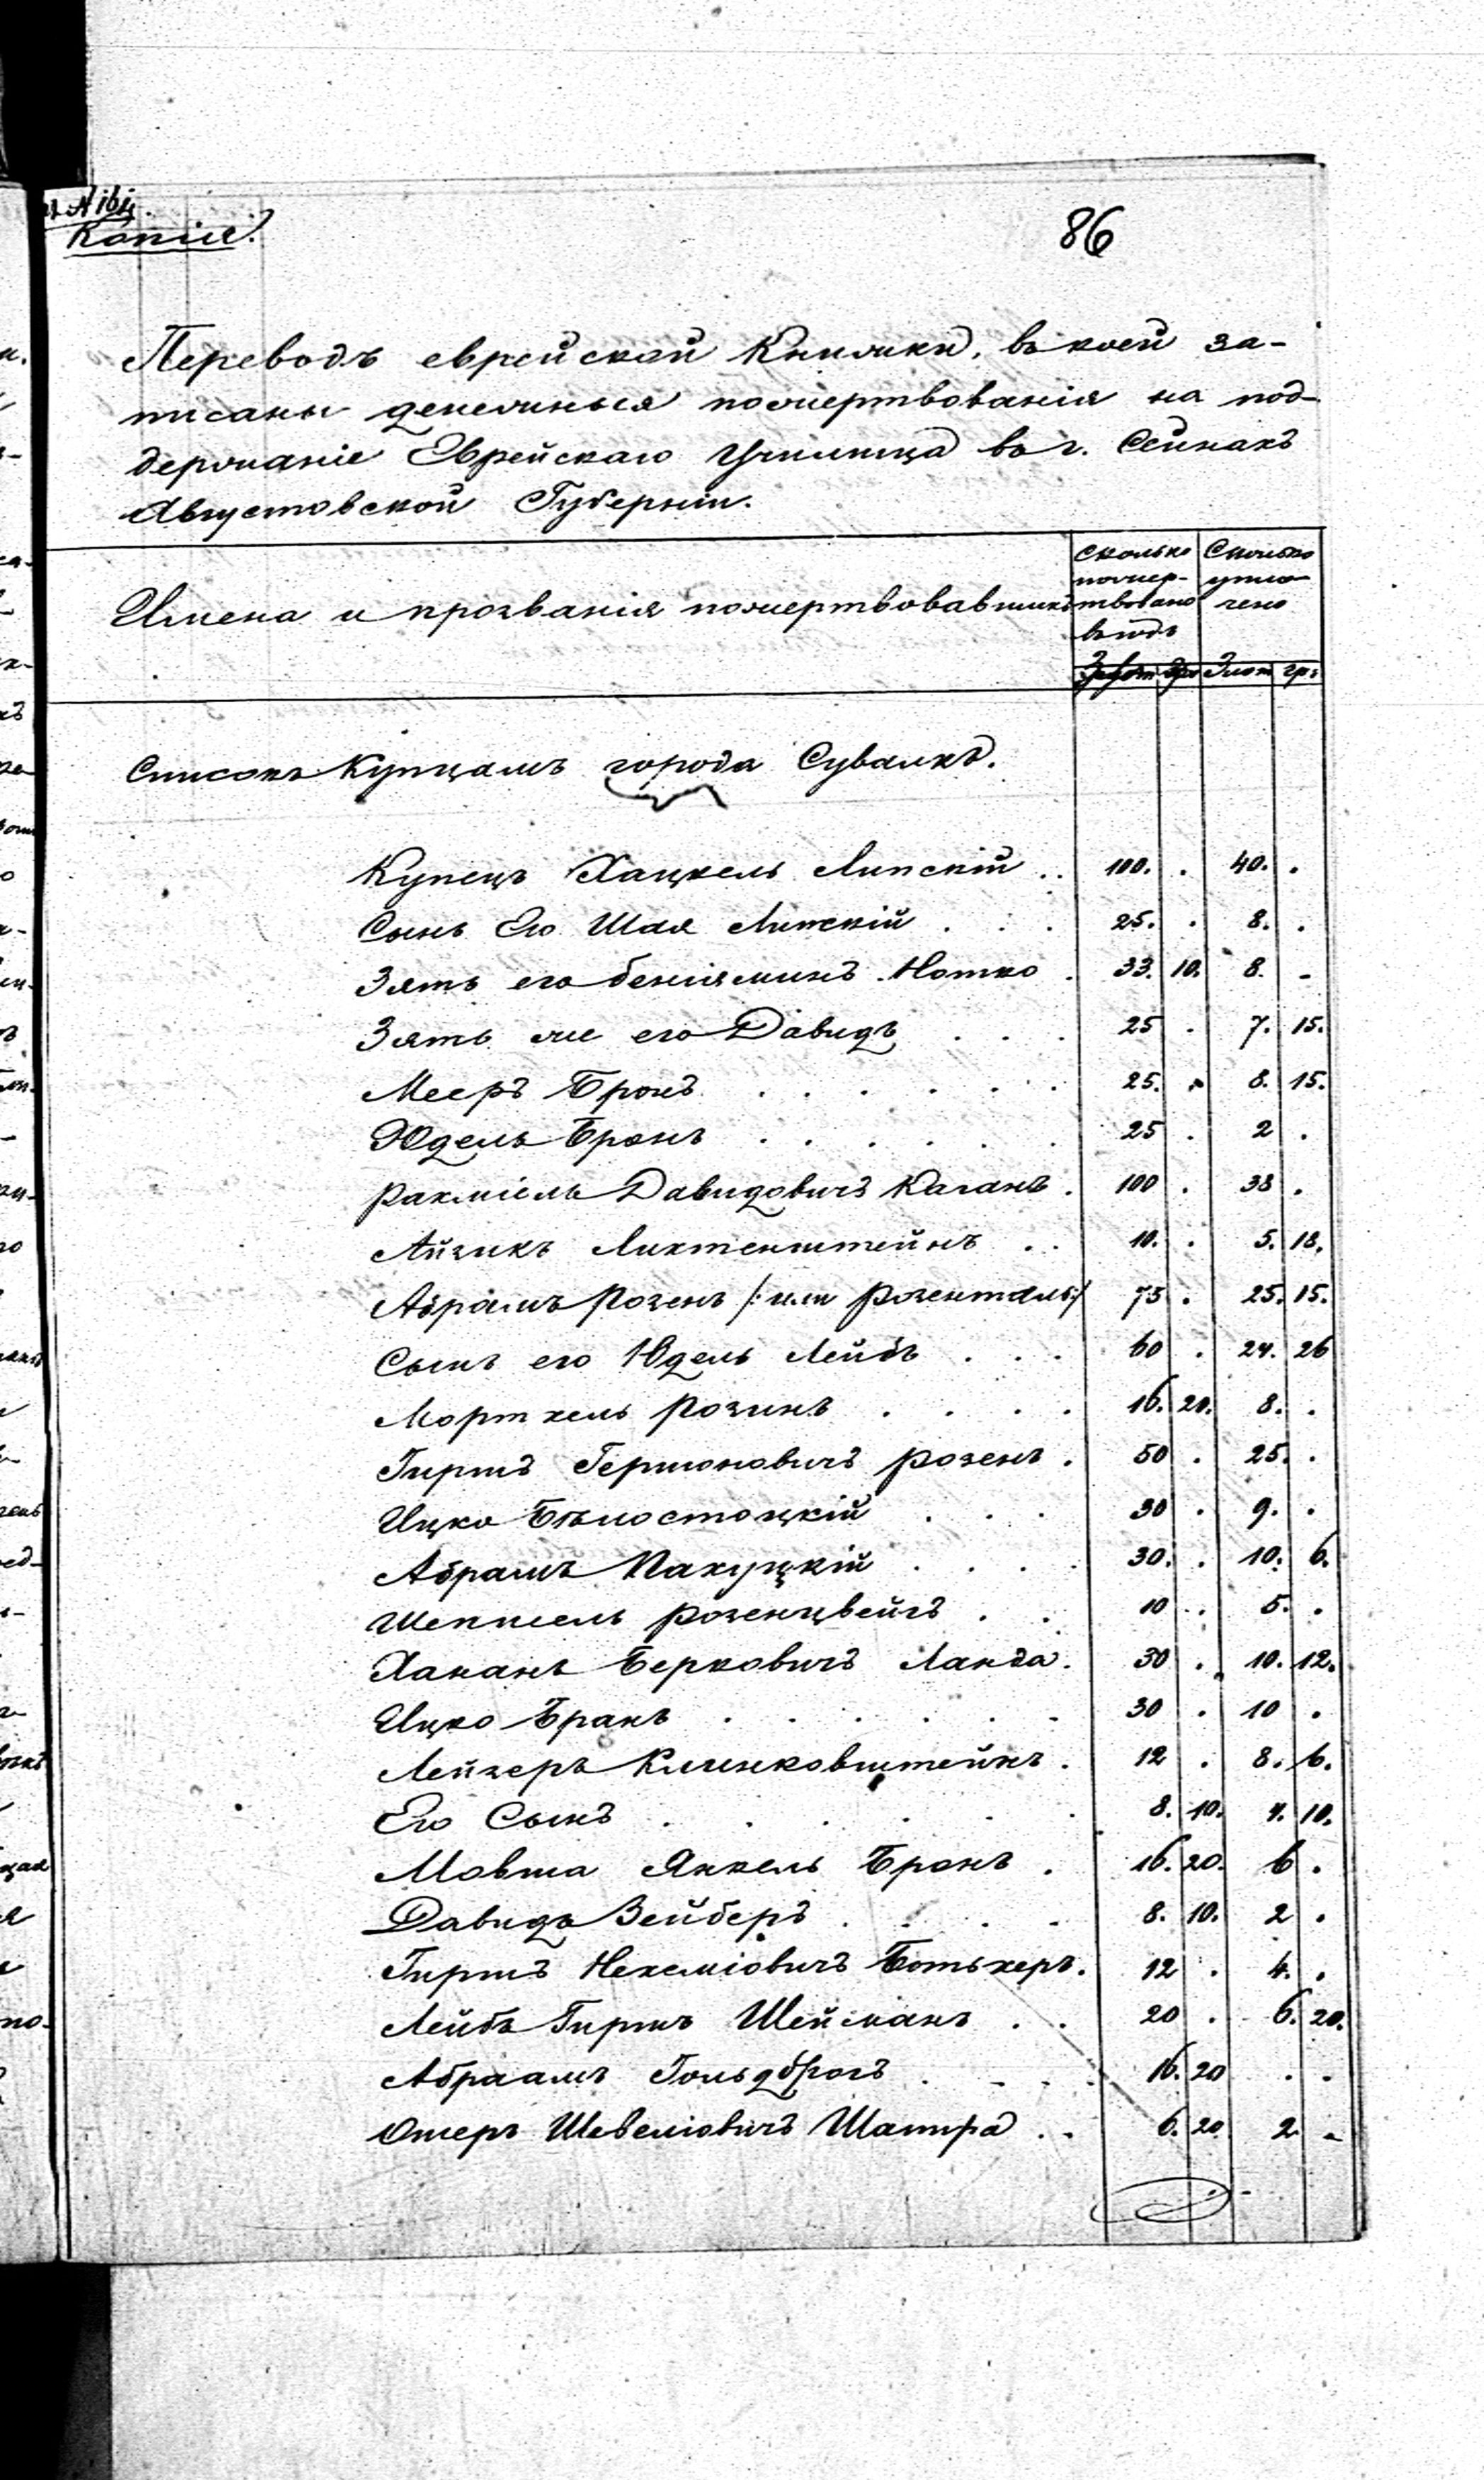 Копія.
86
Переводъ еврейской Книжки, въ коей за-
писаны денежныя пожертвованія на под-
держаніе Еврейскаго Училища въ г. Сейнахъ
Августовской Губерніи.
Имена и прозванія пожертвовавшихъ
Сколько пожер-твовано въ годъ
Сколько упла-чено
Злот гр:
Списокъ Купцамъ города Сувалкъ.
Купецъ Хацкель Липскій . . 100. . 40. .
Сынъ Его Шая Липскій . . . 25. . 8. .
Зять его Беніяминъ Нотко . 33. 10. 8. -
Зять же его Давидъ . . . 25 . 7. 15.
Мееръ Бронъ . . . . . . 25. . 8. 15.
Юдель Бронъ . . . . . . 25 . 2 .
Рахміель Давидовичъ Каганъ . 100 . 38 .
Айзикъ Лихтенштейнъ . . 10. . 5. 18.
Абрамъ Розенъ /: или Розенталь:/ 75 . 25. 15.
Сынъ его Юдель Лейбъ . . . 60 . 24. 26
Мортхель Розинъ . . . . 16. 20. 8. .
Гиршъ Гершоновичъ Розенъ . 50 . 25. .
Ицко Бѣлостоцкій . . . 30 . 9. .
Абрамъ Пахуцкій . . . . 30. . 10. 6.
Шепшель Розенцвейгъ . . 10 . 5. .
Хананъ Берковичъ Ланда . 30 . 10. 12.
Ицко Бранъ . . . . . . 30 . 10 .
Лейзеръ Клинковштейнъ . 12 . 8. 6.
Его Сынъ . . . . . . 8. 10. 4. 10.
Мовша Янкель Бронъ . 16. 20. 6 .
Давидъ Вейберъ . . . . 8. 10. 2 .
Гиршъ Нехеміовичъ Ботьхеръ . 12 . 4. .
Лейбъ Гиршъ Шейманъ . . 20 . 6. 20.
Абраамъ Гольдброгъ . . . . 16. 20 . .
Ошеръ Шевеліовичъ Шапира . . 6. 20 2 -